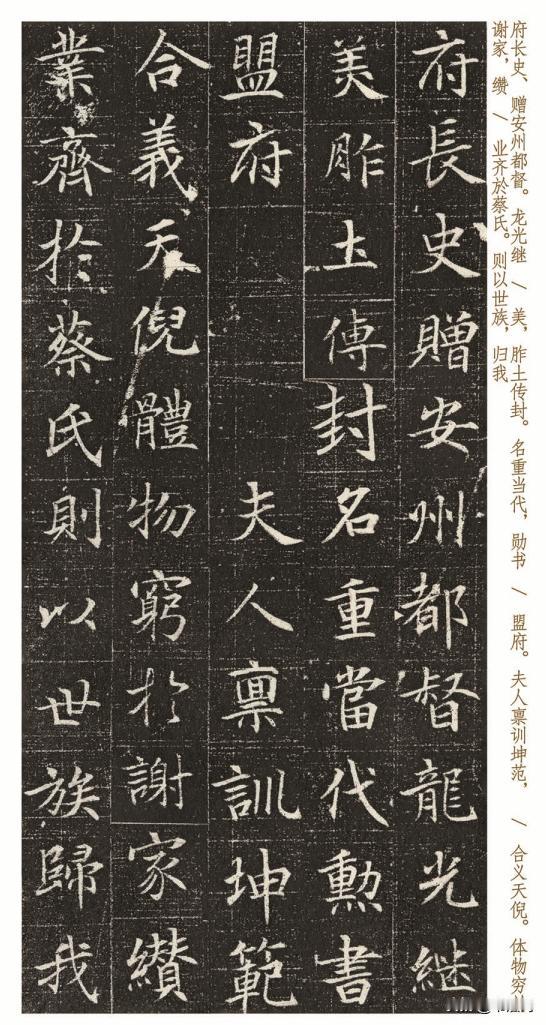 府長史贈安州都督龍光继
美胙土傳封名重當代勳書
盟府夫人禀訓坤範
合義天倪體物窮於謝家纘
業齊於蔡氏則以世族歸我
府长史、赠安州都督。龙光继 / 美，胙土传封。名重当代，勋书 / 盟府。夫人禀训坤范， / 合义天倪。体物穷於
谢家，缵 / 业齐於蔡氏。则以世族，归我